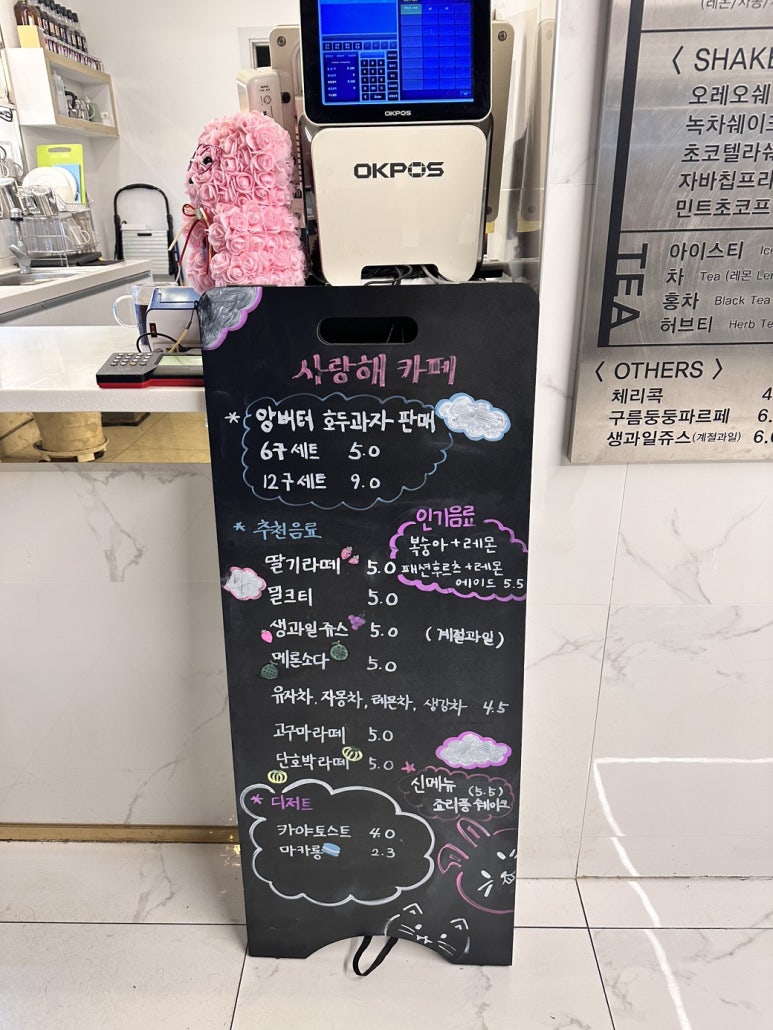 OKPOS
OKPOS
사랑해 카페
* 앙버터 호두과자 판매
6구 세트 5.0
12구 세트 9.0
* 추천음료
인기음료
복숭아+레몬
패션후르츠+레몬
에이드 5.5
딸기라떼 5.0
밀크티 5.0
생과일쥬스 5.0 (계절과일)
메론소다 5.0
유자차, 자몽차, 레몬차, 생강차 4.5
고구마라떼 5.0
단호박라떼 5.0
신메뉴 (5.5)
쵸리풍쉐이크
* 디저트
카야토스트 4.0
마카롱 2.3
(레몬/자몽/
< SHAKE
오레오쉐이
녹차쉐이크
초코텔라쉐
자바칩프라
민트초코프
TEA
아이스티 Ice
차 Tea (레몬 Lem
홍차 Black Tea
허브티 Herb Te
< OTHERS >
체리콕 4
구름둥둥파르페 6.
생과일쥬스(계절과일) 6.0